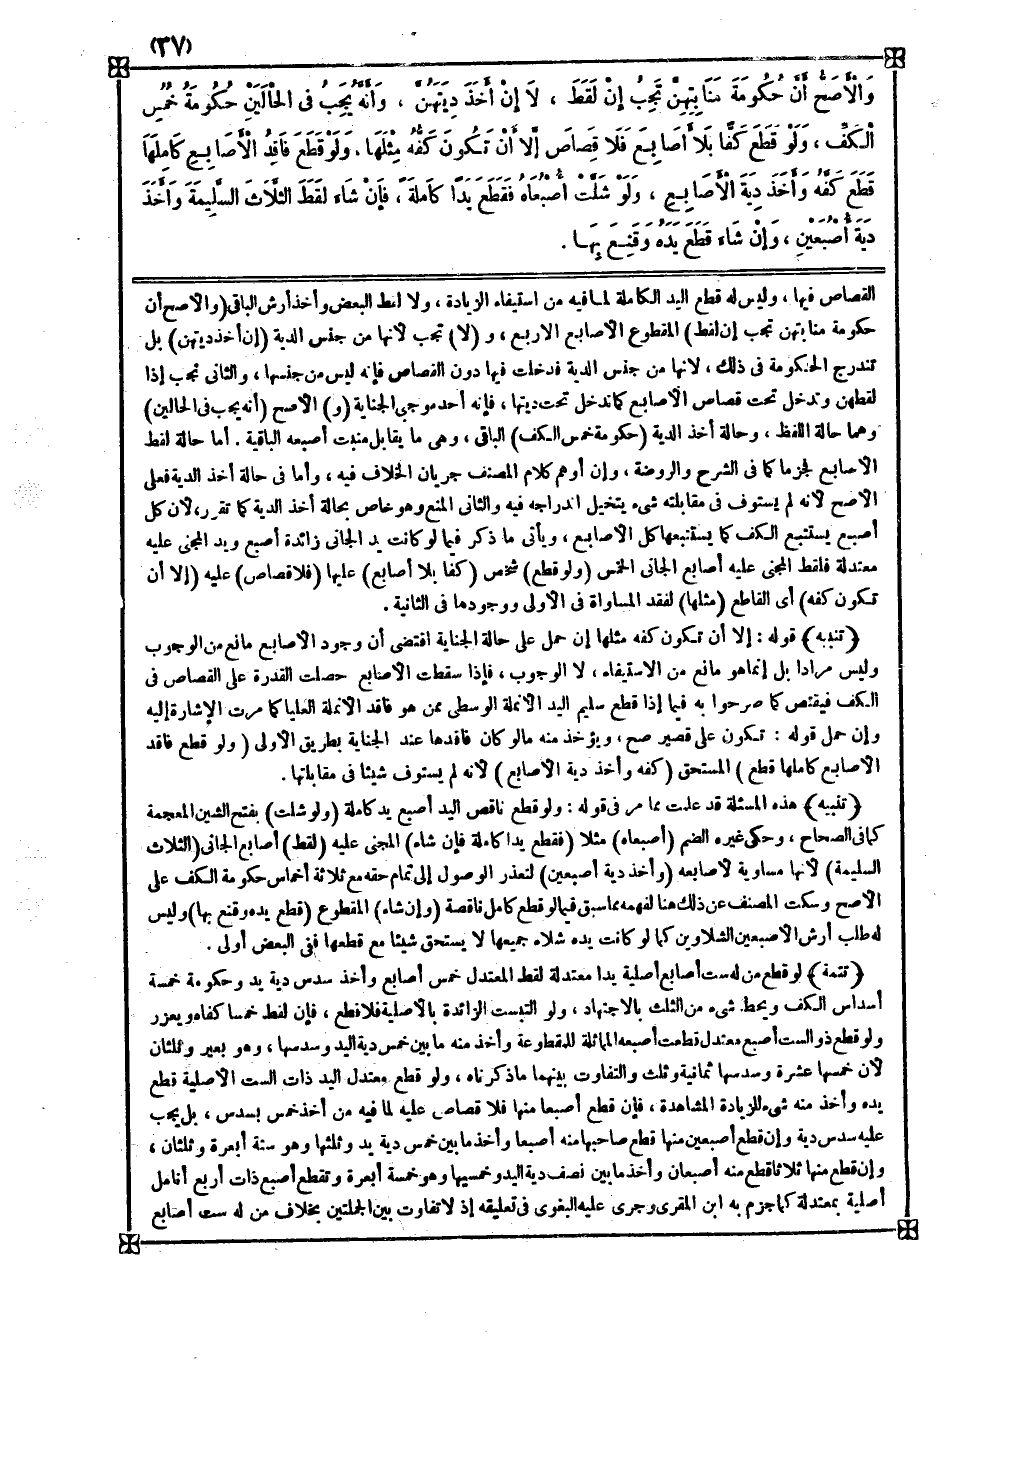 (٣٧)
وَالْأَصَحُّ أَنَّ حُكُومَةَ مَنَابِتِهِنَّ تَجِبُ إِنْ لَقَطَ ، لَا إِنْ أَخَذَ دِيَتَهُنَّ ، وَأَنَّهُ يَجِبُ فِى الْحَالَيْنِ حُكُومَةُ خُمُسِ
الْكَفِّ ، وَلَوْ قَطَعَ كَفًّا بِلَا أَصَابِعَ فَلَا قِصَاصَ إِلَّا أَنْ تَكُونَ كَفُّهُ مِثْلَهَا . وَلَوْ قَطَعَ فَاقِدُ الْأَصَابِعِ كَامِلَهَا
قَطَعَ كَفَّهُ وَأَخَذَ دِيَةَ الْأَصَابِعِ ، وَلَوْ شَلَّتْ أُصْبُعَاهُ فَقَطَعَ يَدًا كَامِلَةً ، فَإِنْ شَاءَ لَقَطَ الثَّلَاثَ السَّلِيمَةَ وَأَخَذَ
دِيَةَ أُصْبُعَيْنِ ، وَإِنْ شَاءَ قَطَعَ يَدَهُ وَقَنِعَ بِهَا .
القصاص فيها ، وليس له قطع اليد الكاملة لما فيه من استيفاء الزيادة ، ولا لقط البعض وأخذ أرش الباقى (والأصح أن
حكومة منابتهن تجب إن لقط) المقطوع الأصابع الأربع ، و (لا) تجب لأنها من جنس الدية (إن أخذ ديتهن) بل
تندرج الحكومة فى ذلك ، لأنها من جنس الدية فدخلت فيها دون القصاص فإنه ليس من جنسها ، والثانى تجب إذا
لقطهن وتدخل تحت قصاص الأصابع كما تدخل تحت ديتها ، فإنه أحد موجبى الجناية (و) الأصح (أنه يجب فى الحالين)
وهما حالة اللقط ، وحالة أخذ الدية (حكومة خمس الكف) الباقى ، وهى ما يقابل منبت أصبعه الباقية . أما حالة لقط
الأصابع لجزما كما فى الشرح والروضة ، وإن أوهم كلام المصنف جريان الخلاف فيه ، وأما فى حالة أخذ الدية فعلى
الأصح لأنه لم يستوف فى مقابلته شىء يتخيل اندراجه فيه والثانى المنع وهو خاص بحالة أخذ الدية كما تقرر، لأن كل
أصبع يستتبع الكف كما يستتبعها كل الأصابع ، ويأتى ما ذكر فيما لو كانت يد الجانى زائدة أصبع ويد المجنى عليه
معتدلة فلقط المجنى عليه أصابع الجانى الخمس (ولو قطع) شخص (كفا بلا أصابع) عليها (فلا قصاص) عليه (إلا أن
تكون كفه) أى القاطع (مثلها) لفقد المساواة فى الأولى ووجودها فى الثانية .
(تنبيه) قوله : إلا أن تكون كفه مثلها إن حمل على حالة الجناية اقتضى أن وجود الأصابع مانع من الوجوب
وليس مرادا بل إنما هو مانع من الاستيفاء ، لا الوجوب ، فإذا سقطت الأصابع حصلت القدرة على القصاص فى
الكف فيقتص كما صرحوا به فيما إذا قطع سليم اليد الأنملة الوسطى ممن هو فاقد الأنملة العليا كما مرت الإشارة إليه
وإن حمل قوله : تكون على تصير صح ، ويؤخذ منه مالو كان فاقدها عند الجناية بطريق الأولى (ولو قطع فاقد
الأصابع كاملها قطع) المستحق (كفه وأخذ دية الأصابع) لأنه لم يستوف شيئا فى مقابلتها .
(تنبيه) هذه المسئلة قد علمت مما مر فى قوله : ولو قطع ناقص اليد أصبع يد كاملة (ولو شلت) بفتح الشين المعجمة
كما فى الصحاح ، وحكى غيره الضم (أصبعاه) مثلا (فقطع يدا كاملة فإن شاء) المجنى عليه (لقط) أصابع الجانى (الثلاث
السليمة) لأنها مساوية لأصابعه (وأخذ دية أصبعين) لتعذر الوصول إلى تمام حقه مع ثلاثة أخماس حكومة الكف على
الأصح وسكت المصنف عن ذلك هنا لفهمه مما سبق فيما لو قطع كامل ناقصة (وإن شاء) المقطوع (قطع يده وقنع بها) وليس
له طلب أرش الأصبعين الشلاوين كما لو كانت يده شلاء جميعها لا يستحق شيئا مع قطعها ففى البعض أولى .
(تتمة) لو قطع من له ست أصابع أصلية يدا معتدلة لقط المعتدل خمس أصابع وأخذ سدس دية يد وحكومة خمسة
أسداس الكف ويحط شىء من الثلث بالاجتهاد ، ولو التبست الزائدة بالأصلية فلا قطع ، فإن لقط خمسا كفاه ويعزر
ولو قطع ذو الست أصبع معتدل قطعت أصبعه المماثلة للمقطوعة وأخذ منه ما بين خمس دية اليد وسدسها ، وهو بعير وثلثان
لأن خمسها عشرة وسدسها ثمانية وثلث والتفاوت بينهما ما ذكرناه ، ولو قطع معتدل اليد ذات الست الأصلية قطع
يده وأخذ منه شىء للزيادة المشاهدة ، فإن قطع أصبعا منها فلا قصاص عليه لما فيه من أخذ خمس بسدس ، بل يجب
عليه سدس دية وإن قطع أصبعين منها قطع صاحبها منه أصبعا وأخذ ما بين خمس دية يد وثلثها وهو ستة أبعرة وثلثان ،
وإن قطع منها ثلاثا قطع منه أصبعان وأخذ ما بين نصف دية اليد وخمسيها وهو خمسة أبعرة وتقطع أصبع ذات أربع أنامل
أصلية بمعتدلة كما جزم به ابن المقرى وجرى عليه البغوى فى تعليقه إذ لا تفاوت بين الجملتين بخلاف من له ست أصابع